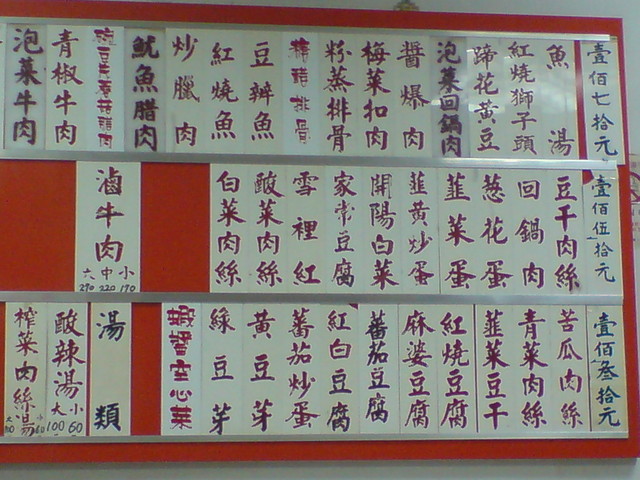 壹佰七拾元
魚湯
紅燒獅子頭
蹄花黃豆
泡菜回鍋肉
醬爆肉
梅菜扣肉
粉蒸排骨
糖醋排骨
豆瓣魚
紅燒魚
炒臘肉
魷魚腊肉
青椒牛肉
泡菜牛肉
壹佰伍拾元
豆干肉絲
回鍋肉
葱花蛋
韮菜蛋
韮黃炒蛋
開陽白菜
家常豆腐
雪裡紅
酸菜肉絲
白菜肉絲
滷牛肉
小 170
中 220
大 270
壹佰叁拾元
苦瓜肉絲
青菜肉絲
韮菜豆干
紅燒豆腐
麻婆豆腐
蕃茄豆腐
紅白豆腐
蕃茄炒蛋
黃豆芽
綠豆芽
蝦醬空心菜
湯類
酸辣湯
小 60
大 100
榨菜肉絲湯